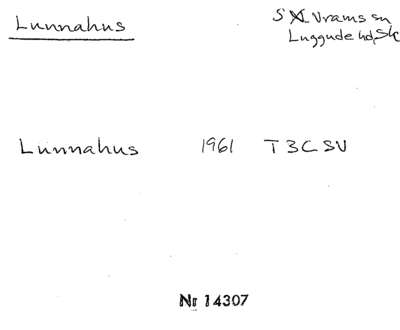 Lunnahus
S Vrams sn
Luggude hd, Sk
Lunnahus 1961 T3C SV
Nr 14307